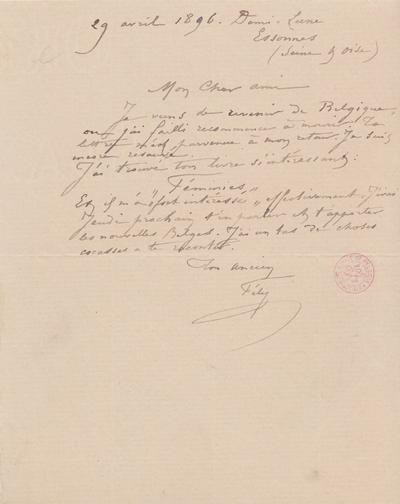 29 avril 1896. Demi-Lune
Essonnes
(Seine & Oise)
Mon Cher ami
Je viens de revenir de Belgique,
où j'ai failli recommencer à mourir. Ta
lettre m'est parvenue à mon retour. Je suis
encore
J'ai trouvé ton livre si intéressant:
"Féminies"
Et il m'a fort intéressé "effectivement. J'irai
Jeudi prochain t'en parler et t'apporter
les nouvelles Belges. J'ai un tas de choses
cocasses à te raconter.
Ton ancien
Fély